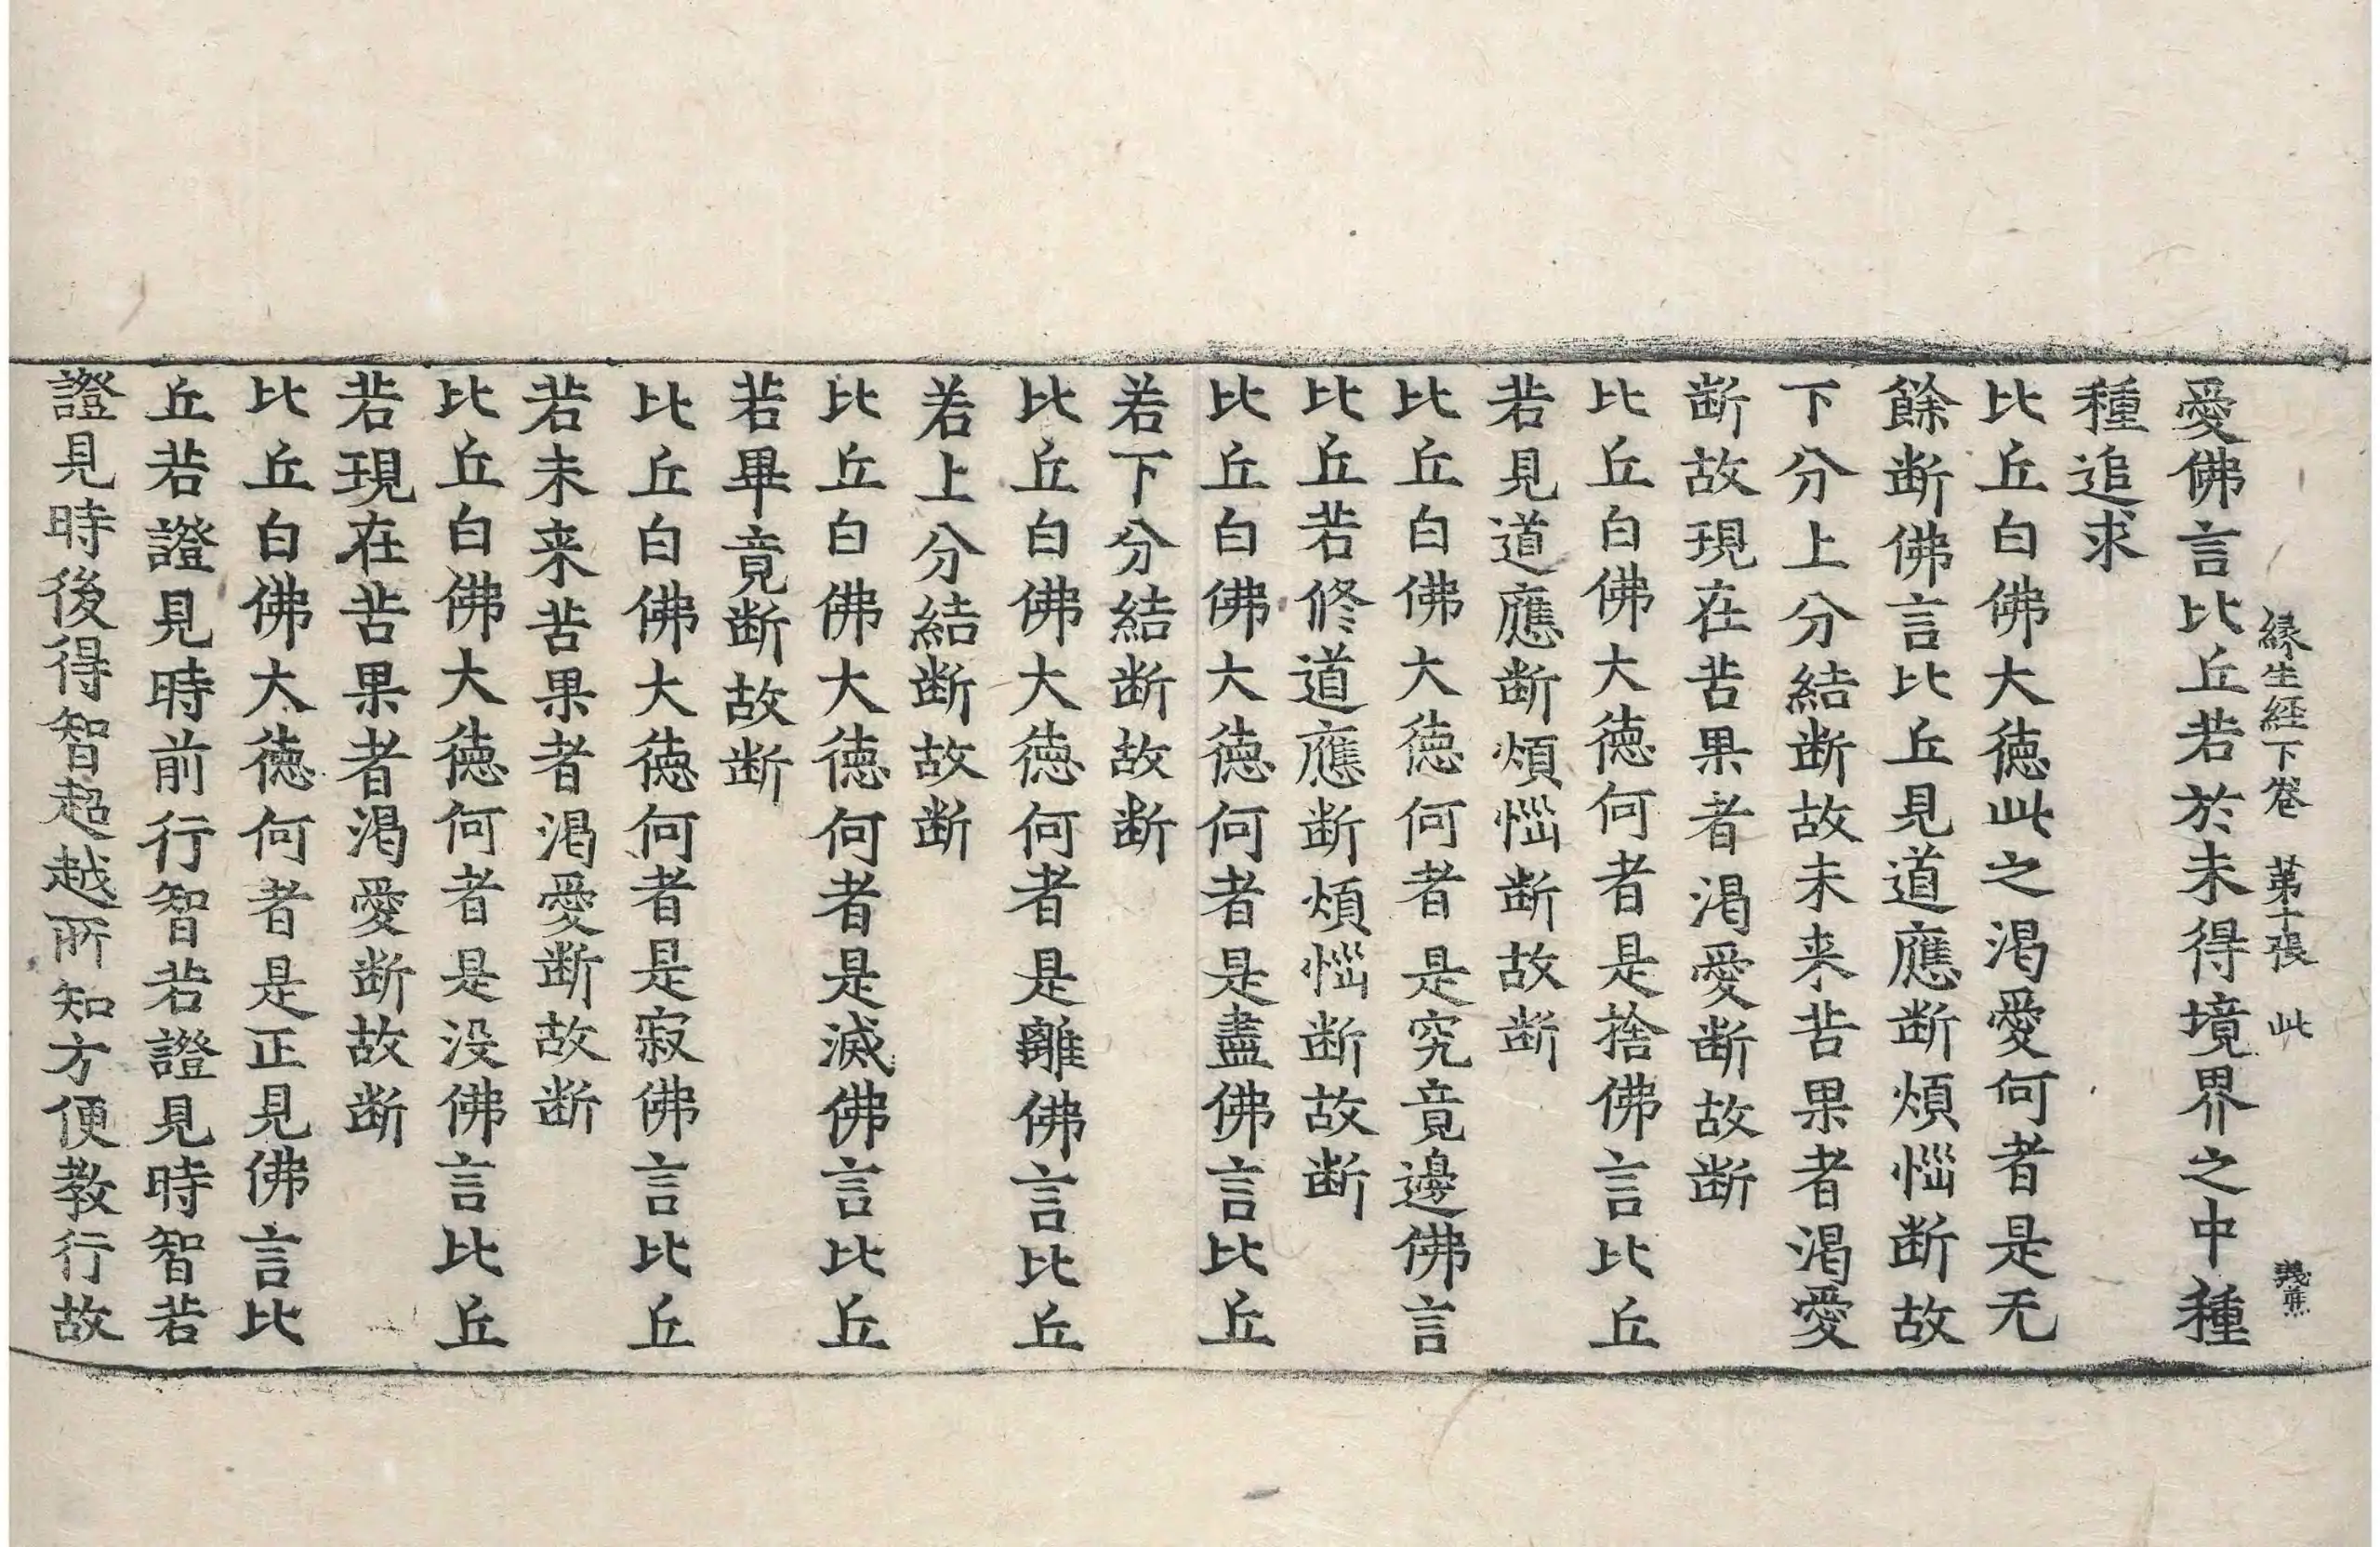 縁生経下卷 苐十張 此 義蕉
愛佛言比丘若於未得境界之中種
種追求
比丘白佛大德此之渴愛何者是无
餘断佛言比丘見道應断煩惱断故
下分上分結断故未来苦果者渴愛
断故現在苦果者渴愛断故断
比丘白佛大德何者是捨佛言比丘
若見道應断煩惱断故断
比丘白佛大德何者是究竟邊佛言
比丘若修道應断煩惱断故断
比丘白佛大德何者是盡佛言比丘
若下分結断故断
比丘白佛大德何者是離佛言比丘
若上分結断故断
比丘白佛大德何者是滅佛言比丘
若畢竟断故断
比丘白佛大德何者是寂佛言比丘
若未来苦果者渴愛断故断
比丘白佛大德何者是没佛言比丘
若現在苦果者渴愛断故断
比丘白佛大德何者是正見佛言比
丘若證見時前行智若證見時智若
證見時後得智超越所知方便教行故